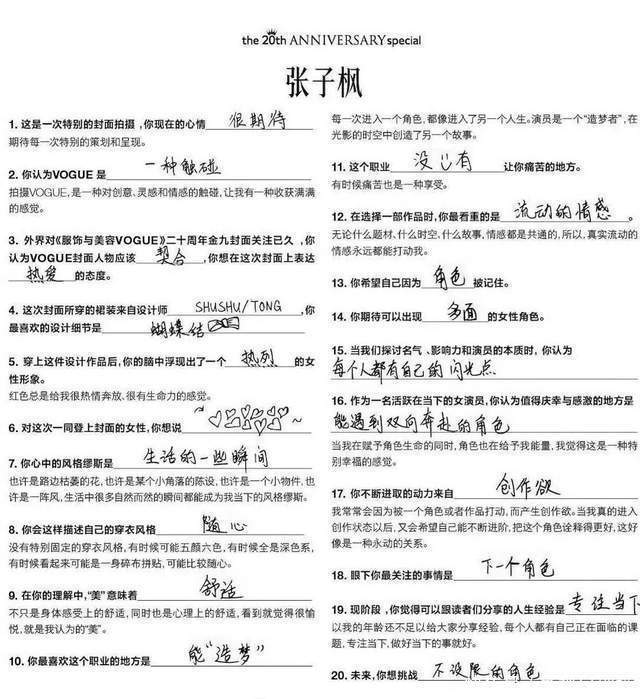 the 20th ANNIVERSARY special
张子枫
1. 这是一次特别的封面拍摄,你现在的心情 很期待
期待每一次特别的策划和呈现。
2. 你认为VOGUE 是 一种触碰
拍摄VOGUE,是一种对创意、灵感和情感的触碰,让我有一种收获满满
的感觉。
3. 外界对《服饰与美容VOGUE》二十周年金九封面关注已久,你
认为VOGUE封面人物应该 契合 ,你想在这次封面上表达
热爱 的态度。
4. 这次封面所穿的裙装来自设计师 SHUSHU/TONG ,你
最喜欢的设计细节是 蝴蝶结
5. 穿上这件设计作品后,你的脑中浮现出了一个 热烈 的女
性形象。
红色总是给我很热情奔放、很有生命力的感觉。
6. 对这次一同登上封面的女性,你想说 ~♡♡♡♡♡♡~
7. 你心中的风格缪斯是 生活的一些瞬间
也许是路边枯萎的花,也许是某个小角落的陈设,也许是一个小物件,也
许是一阵风,生活中很多自然而然的瞬间都能成为我当下的风格缪斯。
8. 你会这样描述自己的穿衣风格 随心
没有特别固定的穿衣风格,有时候可能五颜六色,有时候全是深色系,
有时候看起来可能是一身碎布拼贴,可能比较随心。
9. 在你的理解中,“美”意味着 舒适
不只是身体感受上的舒适,同时也是心理上的舒适,看到就觉得很愉
悦,就是我认为的“美”。
10. 你最喜欢这个职业的地方是 能“造梦”
每一次进入一个角色,都像进入了另一个人生。演员是一个“造梦者”,在
光影的时空中创造了另一个故事。
11. 这个职业 没有 让你痛苦的地方。
有时候痛苦也是一种享受。
12. 在选择一部作品时,你最看重的是 流动的情感 。
无论什么题材、什么时空、什么故事,情感都是共通的,所以,真实流动的
情感永远都能打动我。
13. 你希望自己因为 角色 被记住。
14. 你期待可以出现 多面 的女性角色。
15. 当我们探讨名气、影响力和演员的本质时,你认为
每个人都有自己的闪光点
16. 作为一名活跃在当下的女演员,你认为值得庆幸与感激的地方是
能遇到双向奔赴的角色
当我在赋予角色生命的同时,角色也在给予我能量,我觉得这是一种特
别幸福的感觉。
17. 你不断进取的动力来自 创作欲
我常常会因为被一个角色或者作品打动,而产生创作欲。当我真的进入
创作状态以后,又会希望自己能不断进阶,把这个角色诠释得更好,这好
像是一种永动的关系。
18. 眼下你最关注的事情是 下一个角色
19. 现阶段,你觉得可以跟读者们分享的人生经验是 专注当下
以我的年龄还不足以给大家分享经验,每个人都有自己正在面临的课
题,专注当下,做好当下的事就好。
20. 未来,你想挑战 不设限的角色